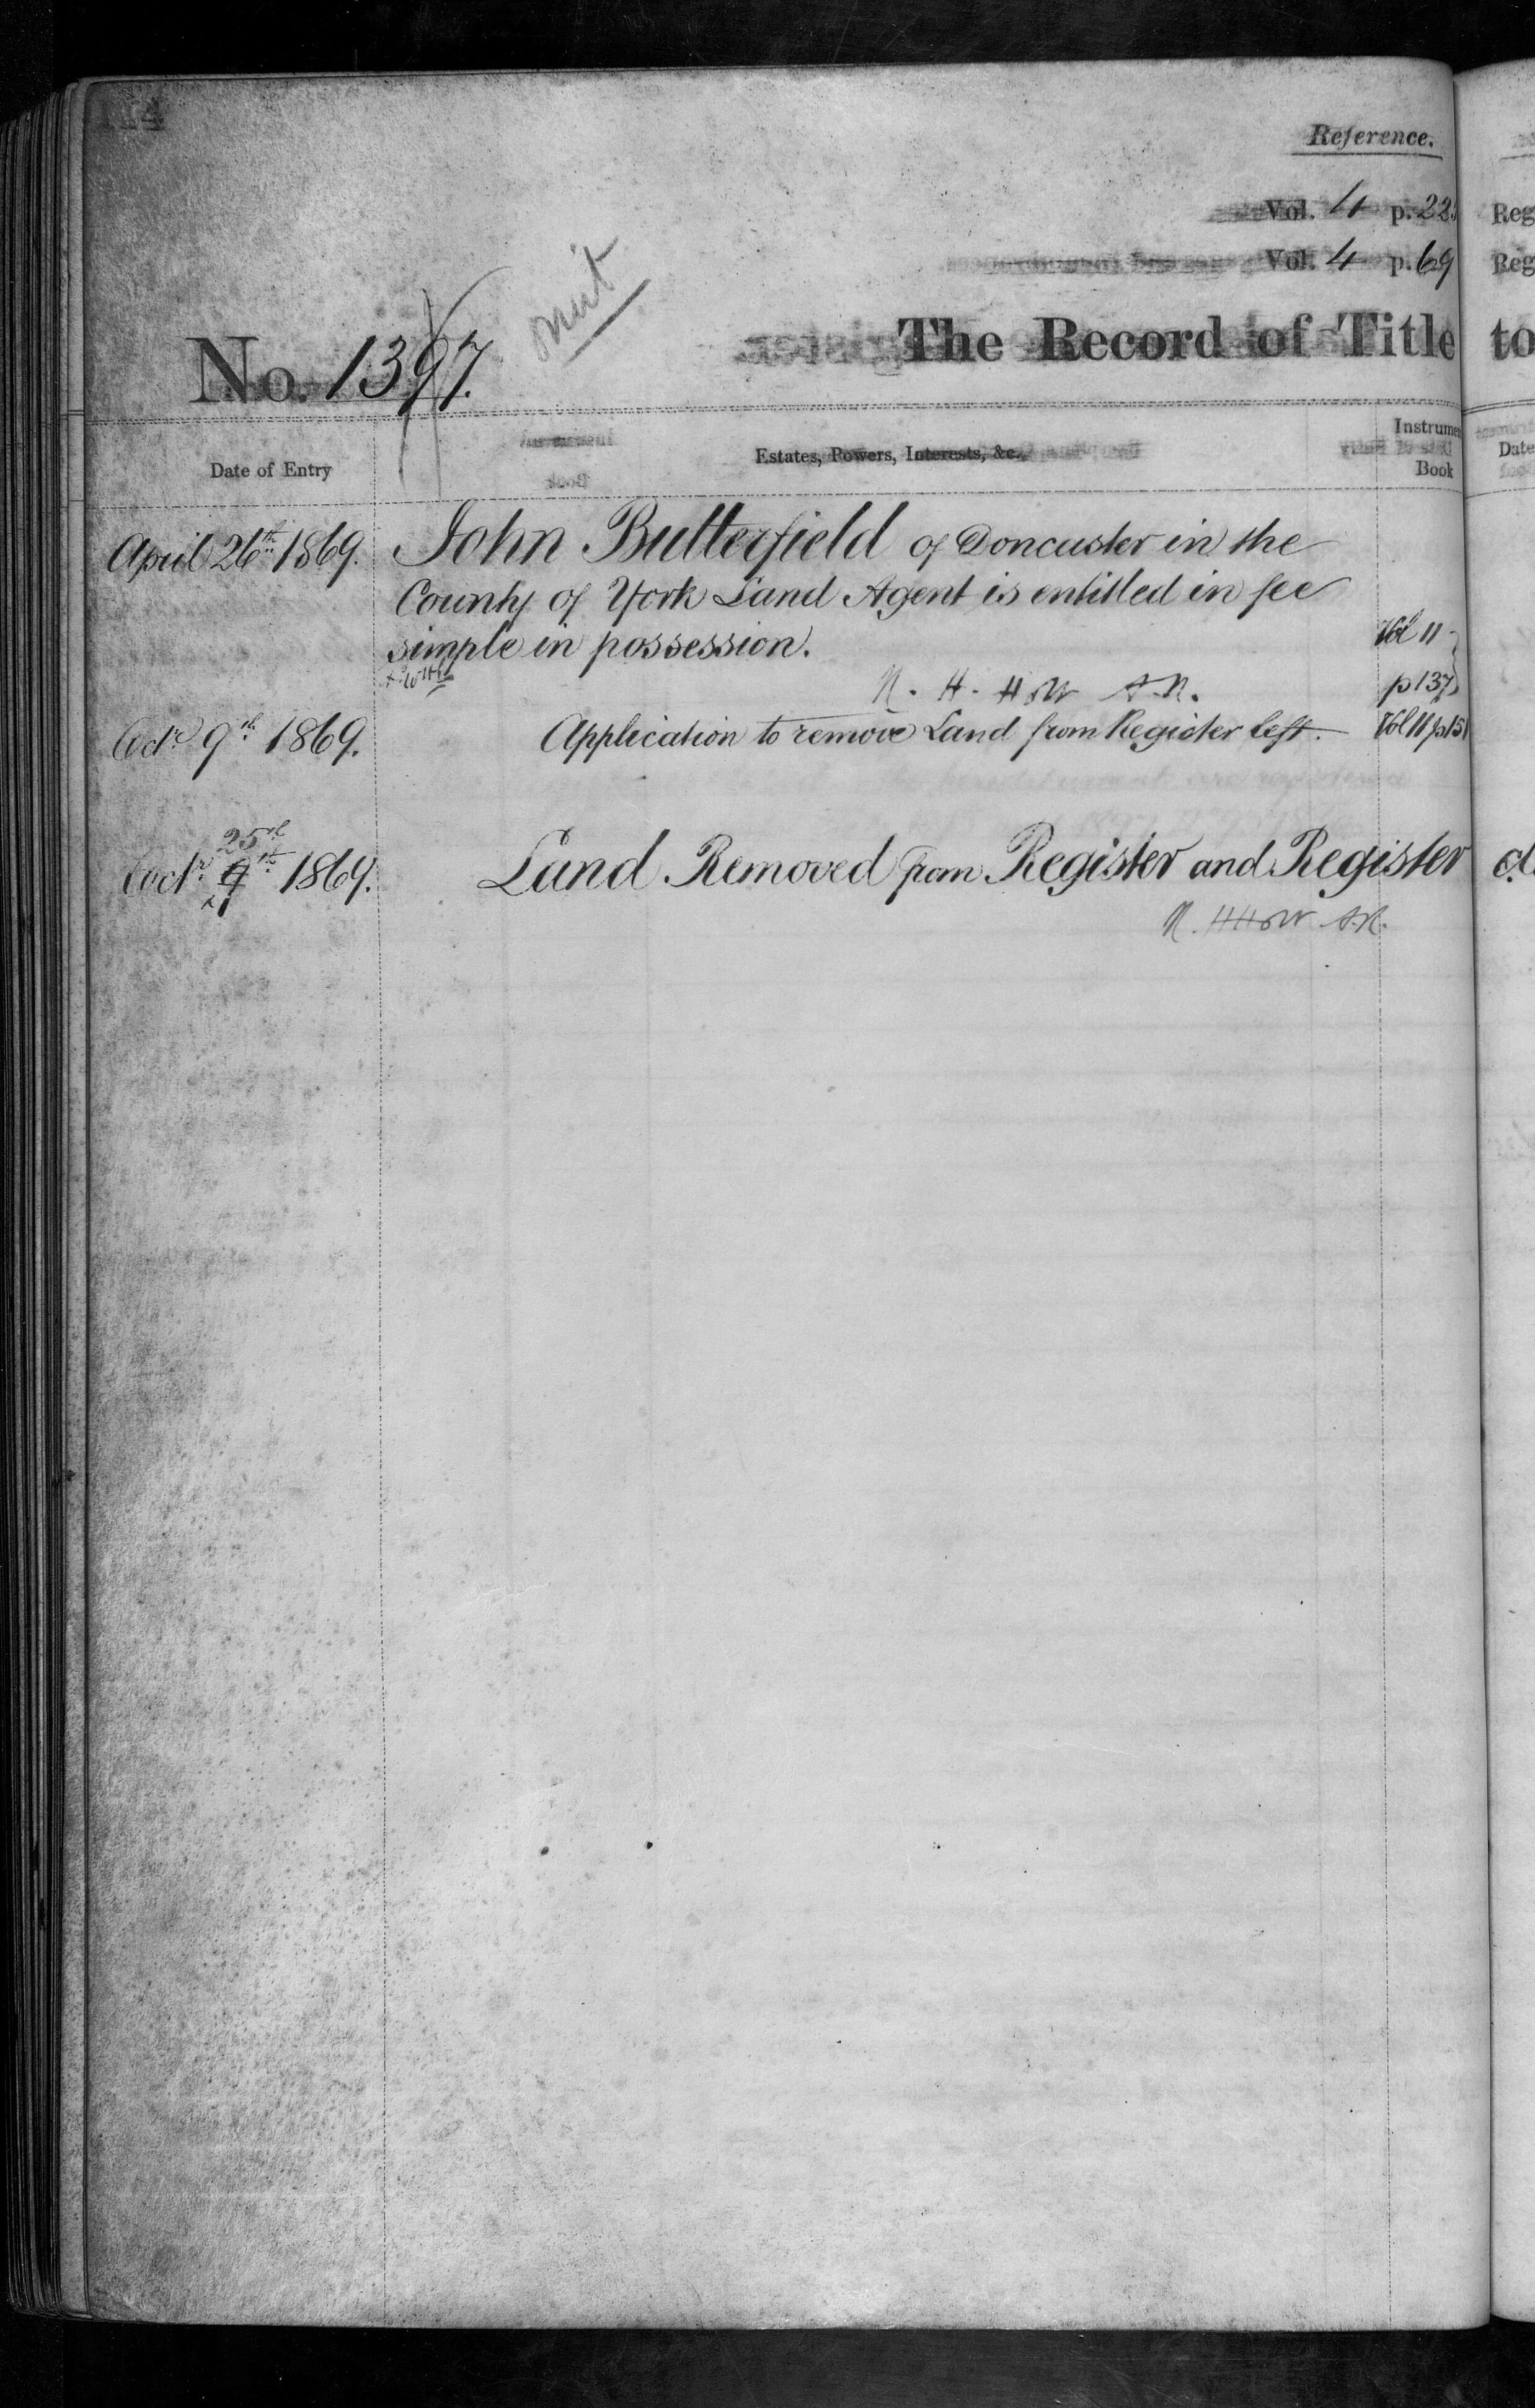 114
Reference.
Vol. 4 p. 22
Vol. 4 p. 69
omit
No. 1397.
The Record of Title to
Date of Entry
Estates, Powers, Interests, &c.
Instrumen
Book
April 26th 1869.
John Butterfield of Doncaster in the
County of York Land Agent is entitled in fee
simple in possession.
Vol 11
p 137
Octr 9th 1869.
Application to remove Land from Register left.
Vol 11 p 151
25th
Octr 9th 1869.
Land Removed from Register and Register cl
Reg
Reg
Date